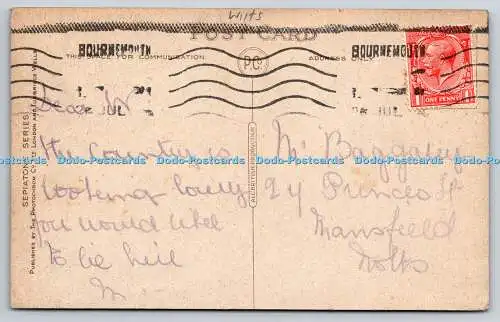 Wilts
POST CARD
BOURNEMOUTH
BOURNEMOUTH
THIS SPACE FOR COMMUNICATION
P.C.
ADDRESS ONLY
JUL
JUL
ONE PENNY
SEPIATONE SERIES
PUBLISHED BY THE PHOTOCHROM CO. LTD. LONDON AND TUNBRIDGE WELLS
ALL BRITISH PRODUCTION
Dear
The Country is
looking lovely
you would like
to be here
Mr Baggaley
24 Princes St
Mansfield
Notts
Dodo-Postcards Dodo-Postcards Dodo-Postcards Dodo-Postcards Dodo-Postcards Dodo-Postcards